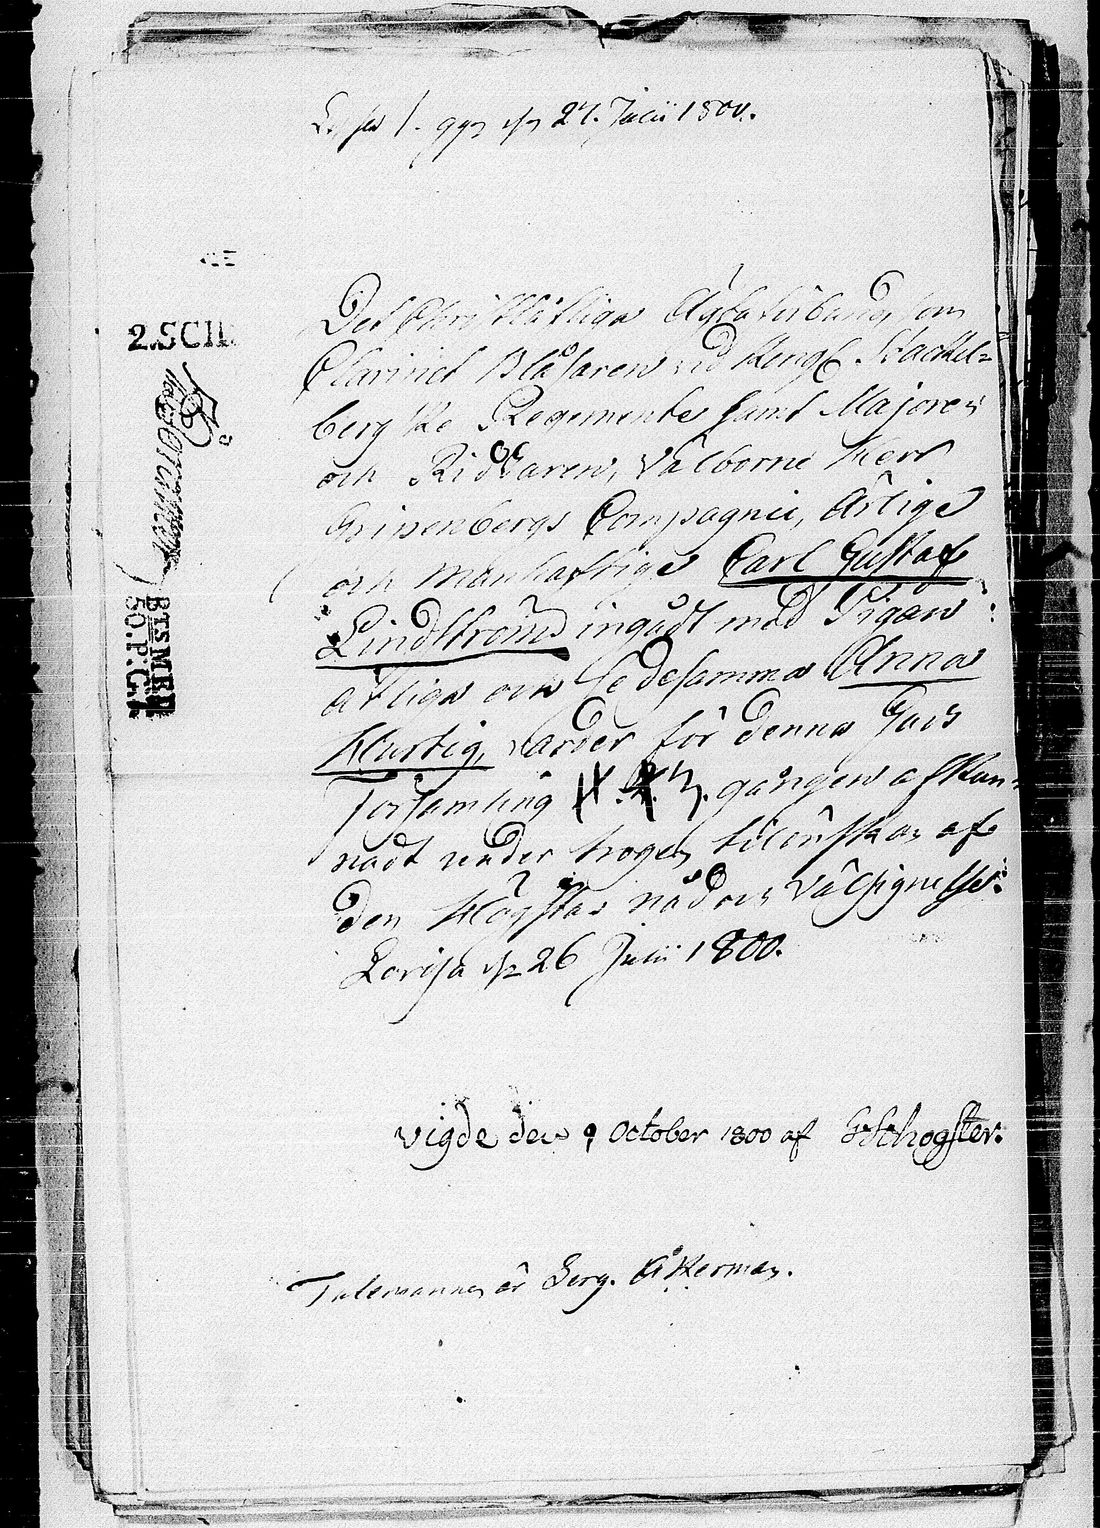 1. 27. Julii 1800.
2.SCII
Det Christelliga Ägtaförbund som
Clarinet Blåsaren vid Kongl. Stackel=
bergske Regemente samt Majoren
och Riddaren, Välborne Herr
Gripenbergs Compagnie, Ärlige
och Manhaftige Carl Gustaf
Lindström ingådt med Pigan
ärliga och Sedesamma Anna
Hurtig, varder för denna Guds
Församling 1. 2. 3. gången afkun=
nadt under trogen tilönskan af
den Högstas nåd och Välsignelse.
Lovisa 26 Julii 1800.
BTSMRK
50.P:C:
vigde den 9 October 1800 af G. Schogster.
Talemannen är Serg. Åkerman.